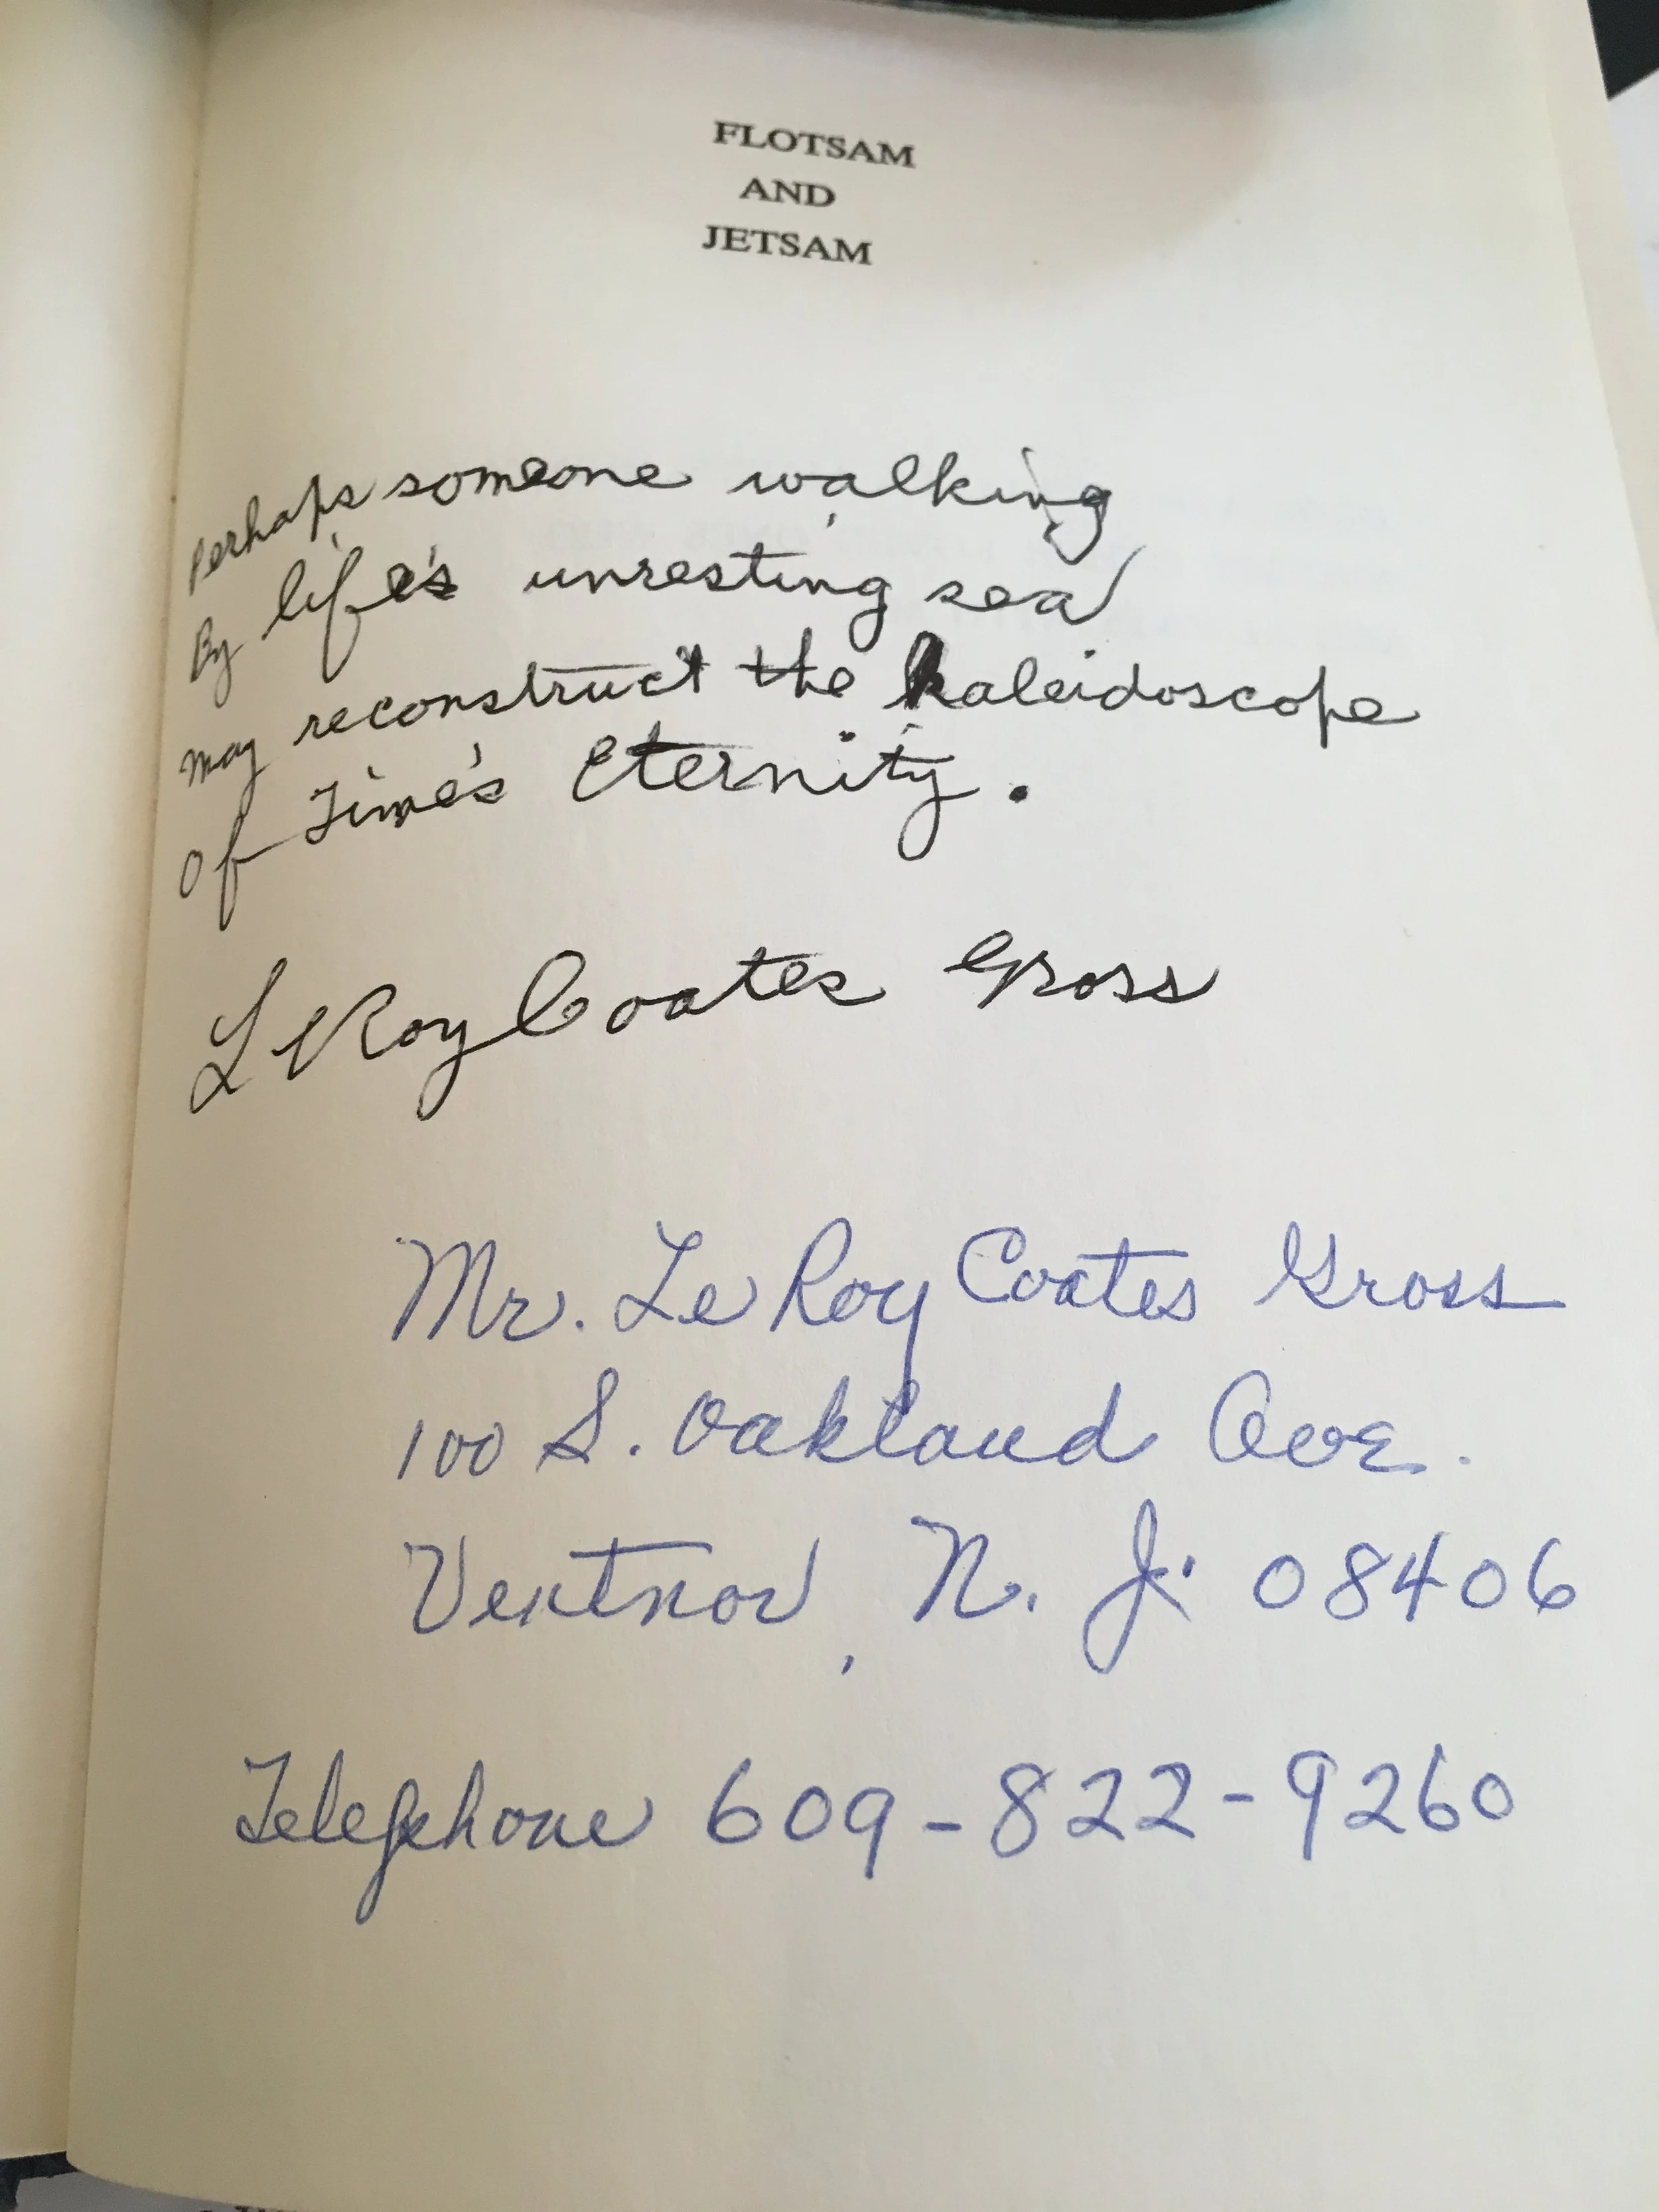 FLOTSAM
AND
JETSAM
Perhaps someone walking
By life's unresting sea
May reconstruct the kaleidoscope
Of Time's Eternity.
LeRoy Coates Gross
Mr. LeRoy Coates Gross
100 S. Oakland Ave.
Ventnor, N. J. 08406
Telephone 609-822-9260